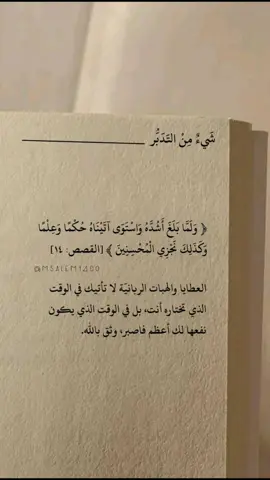 شَيءٌ مِنْ التَدَبُّر
﴿ وَلَمَّا بَلَغَ أَشُدَّهُ وَاسْتَوَى آتَيْنَاهُ حُكْمًا وَعِلْمًا
وَكَذَلِكَ نَجْزِي الْمُحْسِنِينَ ﴾ [القصص: ١٤]
@MSALEM1400
العطايا والهبات الربانيّة لا تأتيك في الوقت
الذي تختاره أنت، بل في الوقت الذي يكون
نفعها لك أعظم فاصبر، وثق بالله.